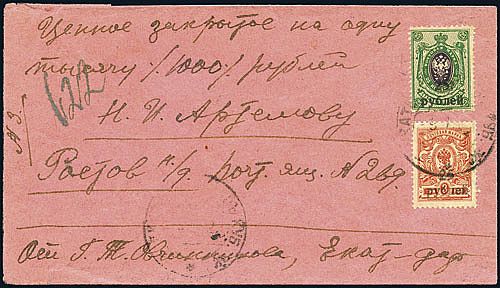 Ценное закрытое на одну
тысячу /1000/ рублей
122
N 3
Н. И. Артемову
Ростов н/д. почт. ящ. N
От Г. Т. Овчинникова, Екат-дар
рублей
рублей